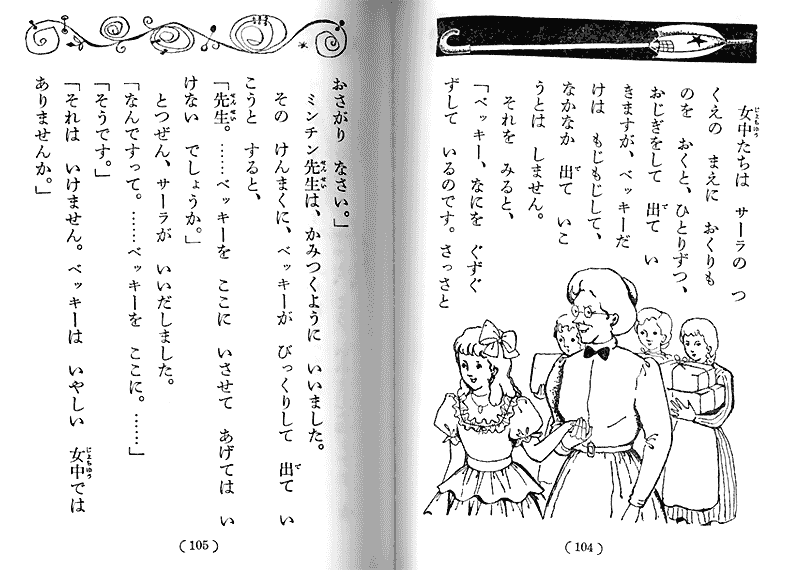 女中たちは　サーラの　つ
くえの　まえに　おくりも
のを　おくと、ひとりずつ、
おじぎをして　出て　い
きますが、ベッキーだ
けは　もじもじして、
なかなか　出て　いこ
うとは　しません。
それを　みると、
「ベッキー、なにを　ぐずぐ
ずして　いるのです。さっさと
(104)
おさがり　なさい。」
ミンチン先生は、かみつくように　いいました。
その　けんまくに、ベッキーが　びっくりして　出て　い
こうと　すると、
「先生。……ベッキーを　ここに　いさせて　あげては　い
けない　でしょうか。」
とつぜん、サーラが　いいだしました。
「なんですって。……ベッキーを　ここに。……」
「そうです。」
「それは　いけません。ベッキーは　いやしい　女中では
ありませんか。」
(105)